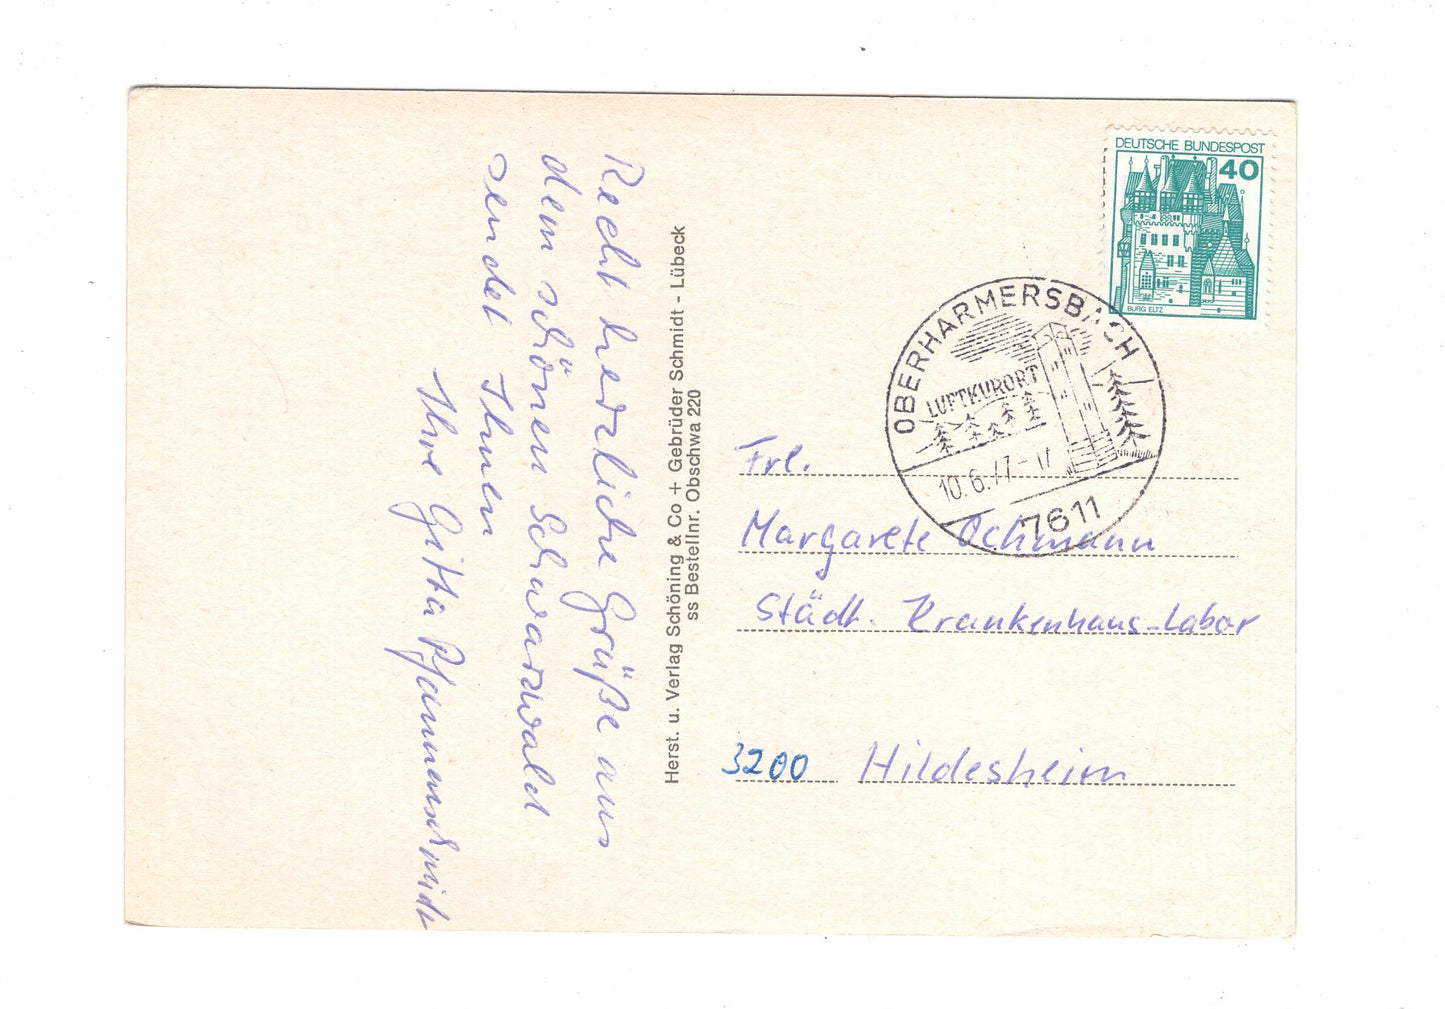 Recht herzliche Grüße aus
dem schönen Schwarzwald
sendet Ihnen
Ihre Gitta Pfannenschmidt
Herst. u. Verlag Schöning & Co + Gebrüder Schmidt - Lübeck
ss Bestellnr. Obschwa 220
DEUTSCHE BUNDESPOST
40
BURG ELTZ
OBERHARMERSBACH
LUFTKURORT
10.6.77-17
7611
Frl.
Margarete Ochmann
Städt. Krankenhaus-Labor
3200 Hildesheim